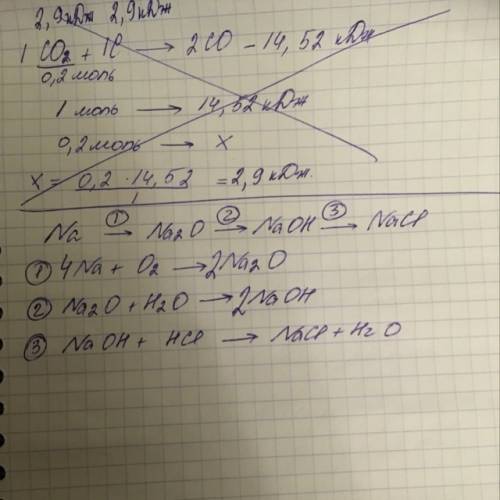 2,9кДж 2,9кДж
1 CO2 + 1C → 2CO - 14,52 кДж
0,2 моль
1 моль → 14,52 кДж
0,2 моль → X
X = 0,2 · 14,52 / 1 = 2,9 кДж.
Na ① → Na2O ② → NaOH ③ → NaCl
① 4Na + O2 → 2Na2O
② Na2O + H2O → 2NaOH
③ NaOH + HCl → NaCl + H2O